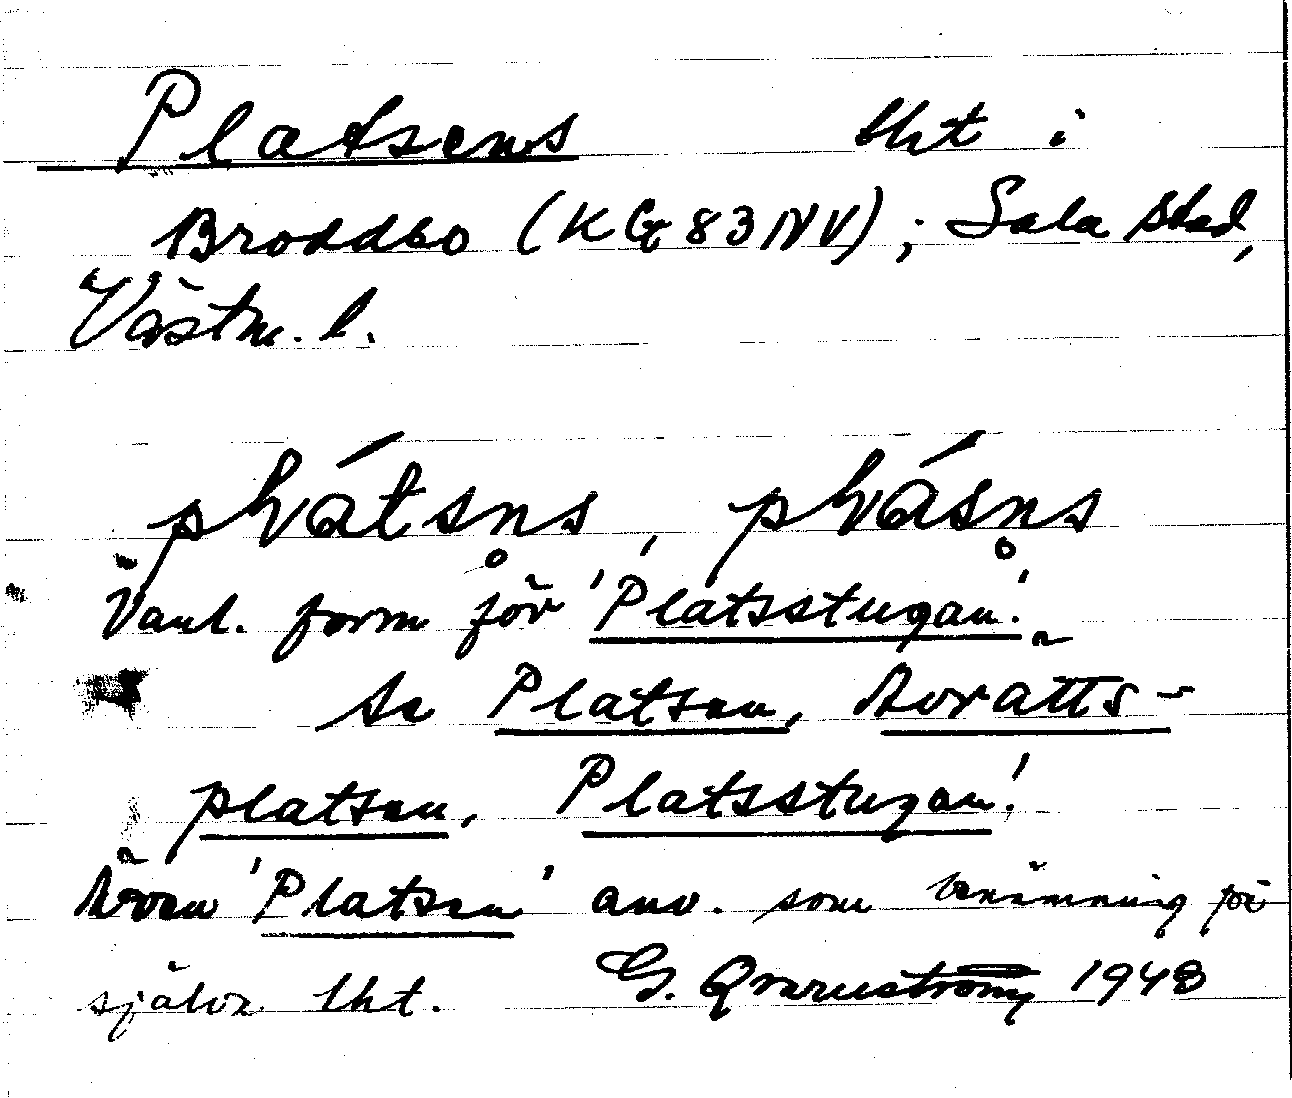 Platsens lht i
Broddbo (KG 83 NV); Sala stad,
Västm. l.
plàtsns, plàsns
Vanl. form för 'Platsstugan'.
Se Platsen, Avratts-
platsen, Platsstugan!
Även 'Platsen' anv. som benämning för
själva lht. G. Qvarnström 1948